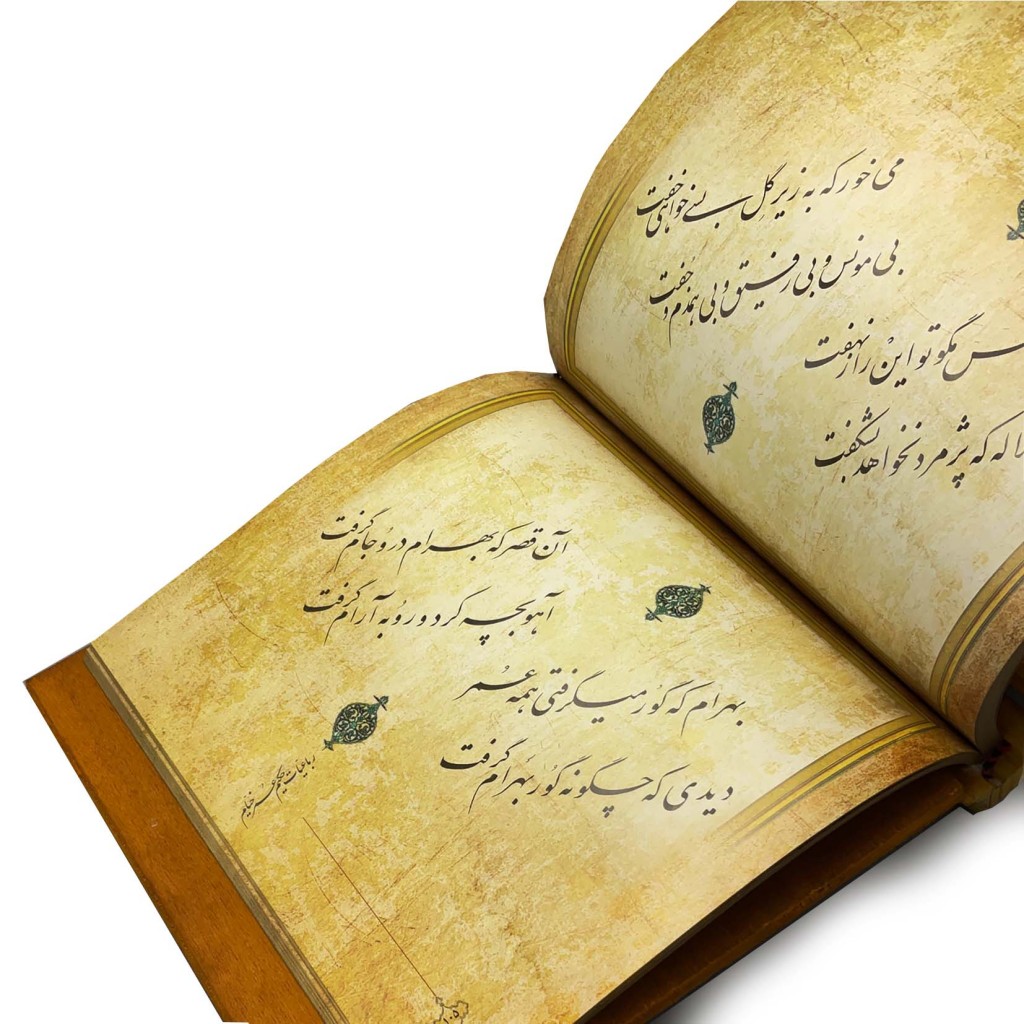 می خور که به زیر گل بسی خواهی خفت
بی مونس و بی رفیق و بی همدم و جفت
مگو تو این راز نهفت
لاله که پژمرد نخواهد بشکفت
آن قصر که بهرام درو جام گرفت
آهو بچه کرد و روبه آرام گرفت
بهرام که گور میگرفتی همه عمر
دیدی که چگونه گور بهرام گرفت
رباعیات حکیم عمر خیام
۱۰۵